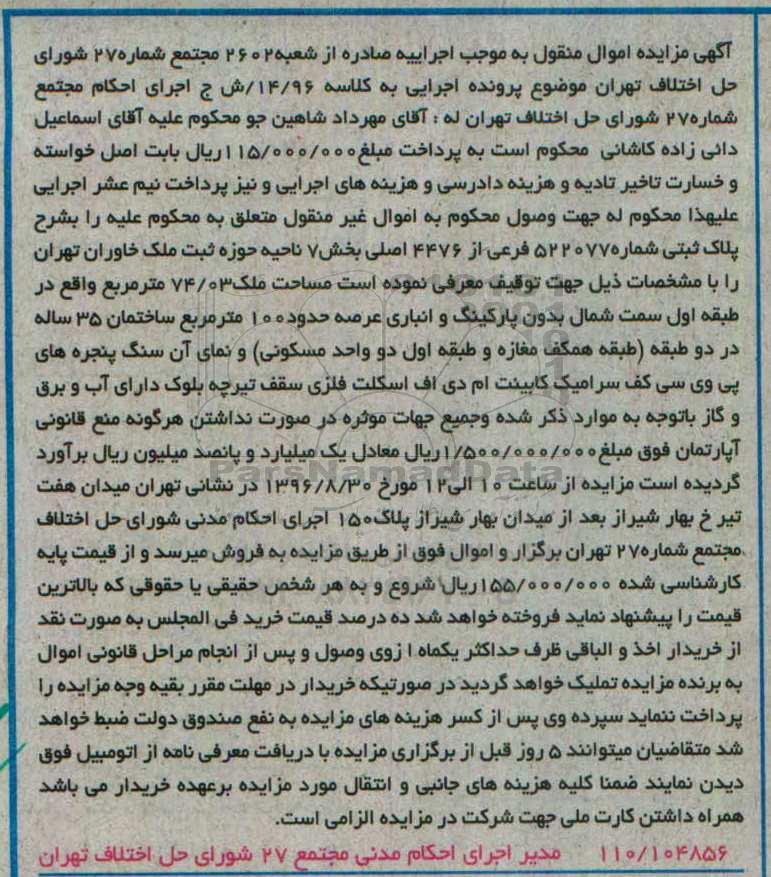 آگهی مزایده اموال منقول به موجب اجراییه صادره از شعبه۲۶۰۲ مجتمع شماره۲۷ شورای
حل اختلاف تهران موضوع پرونده اجرایی به کلاسه ۱۴/۹۶/ش ج اجرای احکام مجتمع
شماره۲۷ شورای حل اختلاف تهران له : آقای مهرداد شاهین جو محکوم علیه آقای اسماعیل
دائی زاده کاشانی محکوم است به پرداخت مبلغ۱۱۵/۰۰۰/۰۰۰ریال بابت اصل خواسته
و خسارت تاخیر تادیه و هزینه دادرسی و هزینه های اجرایی و نیز پرداخت نیم عشر اجرایی
علیهذا محکوم له جهت وصول محکوم به اموال غیر منقول متعلق به محکوم علیه را بشرح
پلاک ثبتی شماره۵۲۲۰۷۷ فرعی از ۴۴۷۶ اصلی بخش۷ ناحیه حوزه ثبت ملک خاوران تهران
را با مشخصات ذیل جهت توقیف معرفی نموده است مساحت ملک۷۴/۰۳ مترمربع واقع در
طبقه اول سمت شمال بدون پارکینگ و انباری عرصه حدود۱۰۰ مترمربع ساختمان ۳۵ ساله
در دو طبقه (طبقه همکف مغازه و طبقه اول دو واحد مسکونی) و نمای آن سنگ پنجره های
پی وی سی کف سرامیک کابینت ام دی اف اسکلت فلزی سقف تیرچه بلوک دارای آب و برق
و گاز باتوجه به موارد ذکر شده وجمیع جهات موثره در صورت نداشتن هرگونه منع قانونی
آپارتمان فوق مبلغ۱/۵۰۰/۰۰۰/۰۰۰ریال معادل یک میلیارد و پانصد میلیون ریال برآورد
گردیده است مزایده از ساعت ۱۰ الی۱۲ مورخ ۱۳۹۶/۸/۳۰ در نشانی تهران میدان هفت
تیر خ بهار شیراز بعد از میدان بهار شیراز پلاک۱۵۰ اجرای احکام مدنی شورای حل اختلاف
مجتمع شماره۲۷ تهران برگزار و اموال فوق از طریق مزایده به فروش میرسد و از قیمت پایه
کارشناسی شده ۱۵۵/۰۰۰/۰۰۰ریال شروع و به هر شخص حقیقی یا حقوقی که بالاترین
قیمت را پیشنهاد نماید فروخته خواهد شد ده درصد قیمت خرید فی المجلس به صورت نقد
از خریدار اخذ و الباقی ظرف حداکثر یکماه ا زوی وصول و پس از انجام مراحل قانونی اموال
به برنده مزایده تملیک خواهد گردید در صورتیکه خریدار در مهلت مقرر بقیه وجه مزایده را
پرداخت ننماید سپرده وی پس از کسر هزینه های مزایده به نفع صندوق دولت ضبط خواهد
شد متقاضیان میتوانند ۵ روز قبل از برگزاری مزایده با دریافت معرفی نامه از اتومبیل فوق
دیدن نمایند ضمنا کلیه هزینه های جانبی و انتقال مورد مزایده برعهده خریدار می باشد
همراه داشتن کارت ملی جهت شرکت در مزایده الزامی است.
۱۱۰/۱۰۴۸۵۶ مدیر اجرای احکام مدنی مجتمع ۲۷ شورای حل اختلاف تهران
ParsNamadData